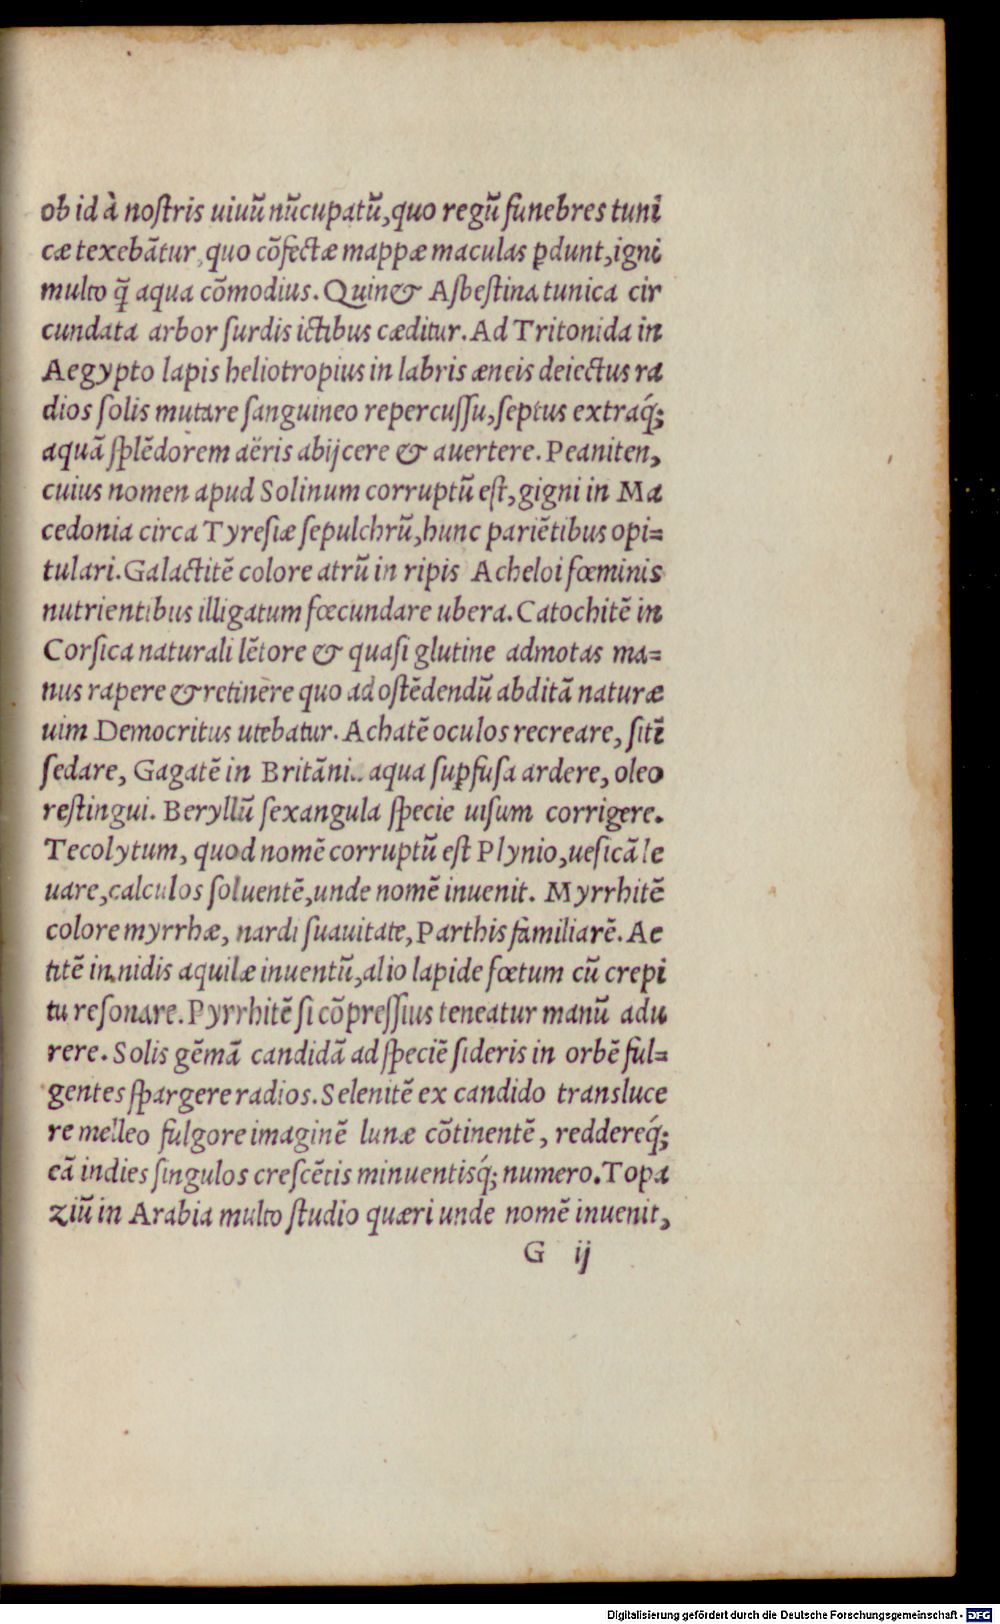 ob id à noſtris uiuũ nũcupatũ,quo regũ funebres tunĩ
cæ texebãtur,quo cõfectæ mappæ maculas ꝑdunt,igni
multo q̃ aqua cõmodius. Quin& Aſbeſtina tunica cir
cundata arbor ſurdis ictibus cæditur. Ad Tritonida in
Aegypto lapis heliotropius in labris æneis deiectus ra
dios ſolis mutare ſanguineo repercuſſu,ſeptus extraq́;
aquã ſplẽdorem aëris abijcere & auertere. Peaniten,
cuius nomen apud Solinum corruptũ eſt,gigni in Ma
cedonia circa Tyreſiæ ſepulchrũ,hunc pariẽtibus opi=
tulari. Galactitẽ colore atrũ in ripis Acheloi fœminis
nutrientibus illigatum fœcundare ubera. Catochitẽ in
Corſica naturali lẽtore & quaſi glutine admotas ma=
nus rapere & retinere quo ad oſtẽdendũ abditã naturæ
uim Democritus utebatur. Achatẽ oculos recreare, ſitĩ
ſedare, Gagatẽ in Britãni.. aqua ſuꝑfuſa ardere, oleo
reſtingui. Beryllũ ſexangula ſpecie uiſum corrigere.
Tecolytum, quod nomẽ corruptũ eſt Plynio,ueſicã le
uare,calculos ſoluentẽ,unde nomẽ inuenit. Myrrhitẽ
colore myrrhæ, nardi ſuauitate, Parthis familiarẽ. Ae
titẽ in nidis aquilæ inuentũ,alio lapide fœtum cũ crepi
tu reſonare. Pyrrhitẽ ſi cõpreſſius teneatur manũ adu
rere. Solis gẽmã candidã ad ſpeciẽ ſideris in orbẽ ful=
gentes ſpargere radios. Selenitẽ ex candido transluce
re melleo fulgore imaginẽ lunæ cõtinentẽ, reddereq́;
eã indies ſingulos creſcẽtis minuentisq́; numero. Topa
ziũ in Arabia multo ſtudio quæri unde nomẽ inuenit,
G ij
Digitalisierung gefördert durch die Deutsche Forschungsgemeinschaft - DFG